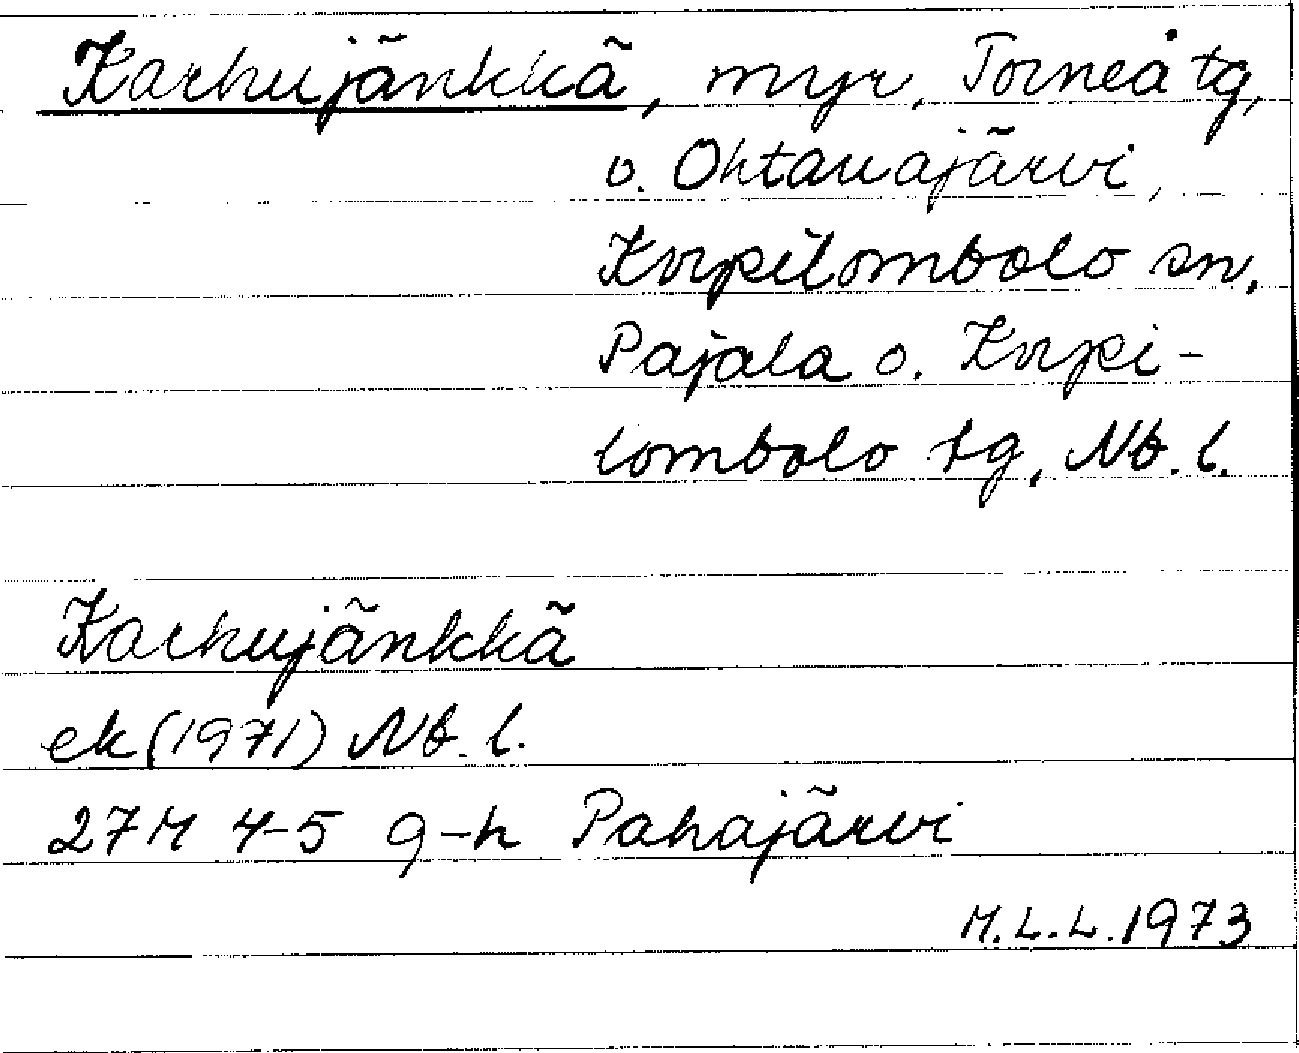 Karhujänkkä, myr, Torneå tg,
o. Ohtanajärvi,
Korpilombolo sn,
Pajala o. Korpi-
lombolo tg, Nb. l.
Karhujänkkä
ek (1971) Nb. l.
27M 4-5 g-h Pahajärvi
M.L.L. 1973